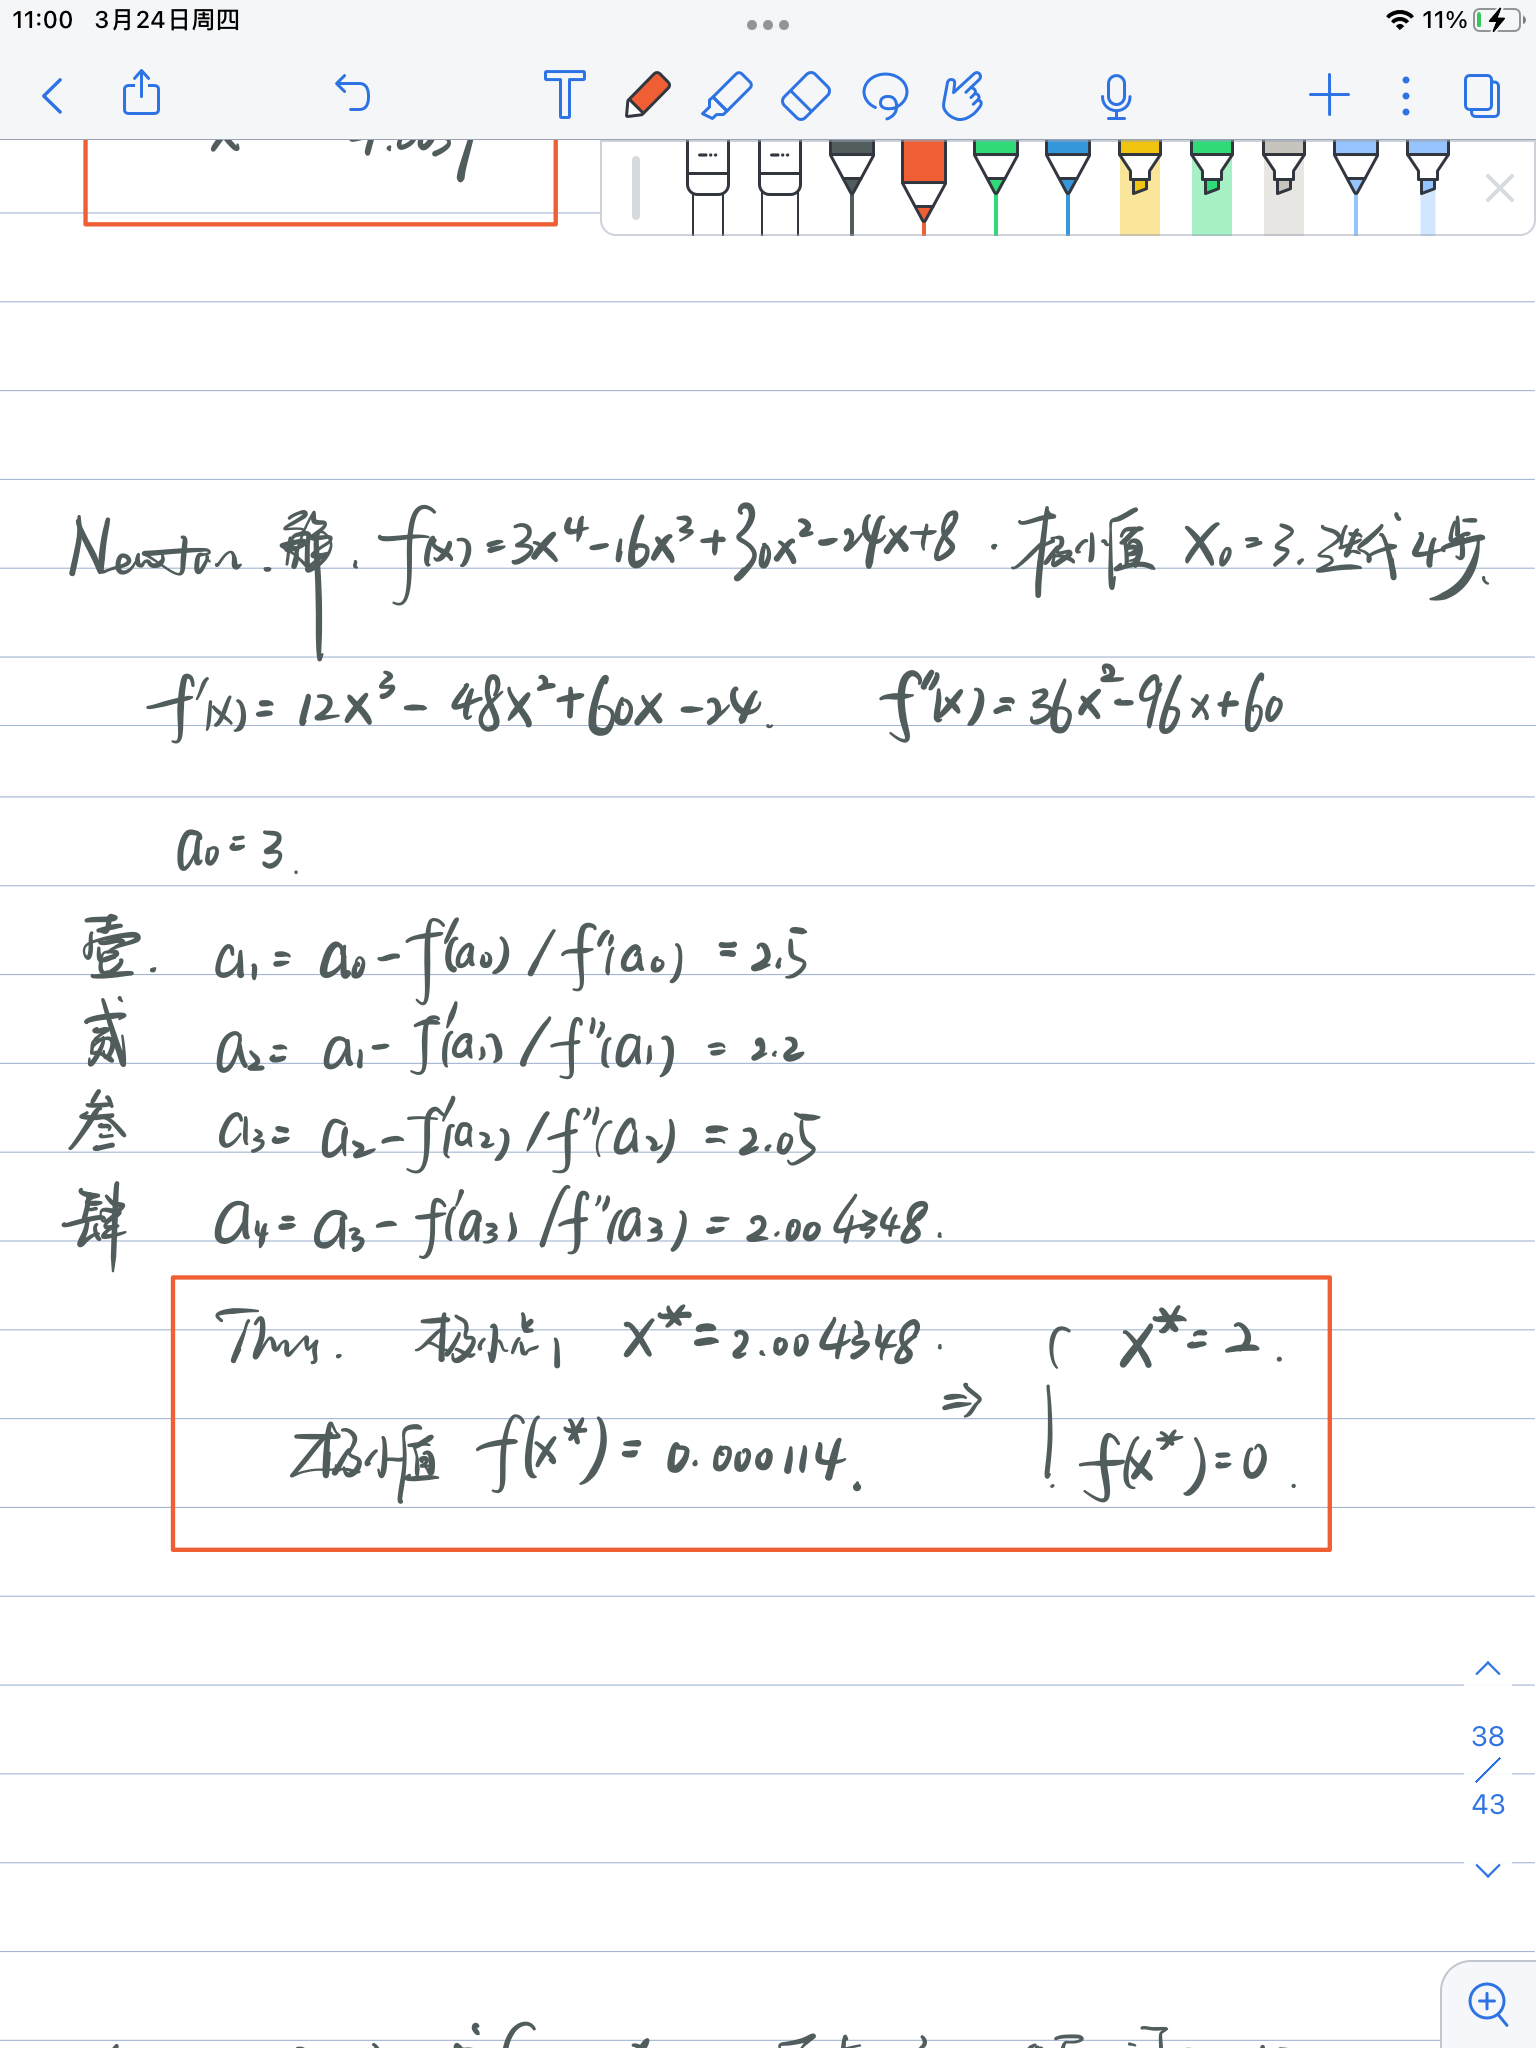 11:00 3月24日周四 11%
Newton.解. f(x)=3x⁴-16x³+30x²-24x+8. 极小值 x₀=3. 迭代4步.
f'(x)=12x³-48x²+60x-24. f"(x)=36x²-96x+60
a₀=3.
壹. a₁=a₀-f'(a₀)/f"(a₀)=2.5
贰 a₂=a₁-f'(a₁)/f"(a₁)=2.2
叁 a₃=a₂-f'(a₂)/f"(a₂)=2.05
肆 a₄=a₃-f'(a₃)/f"(a₃)=2.004348.
Thus. 极小点, x*=2.004348. ⇒ { x*=2.
极小值 f(x*)=0.000114. f(x*)=0.
38
/
43